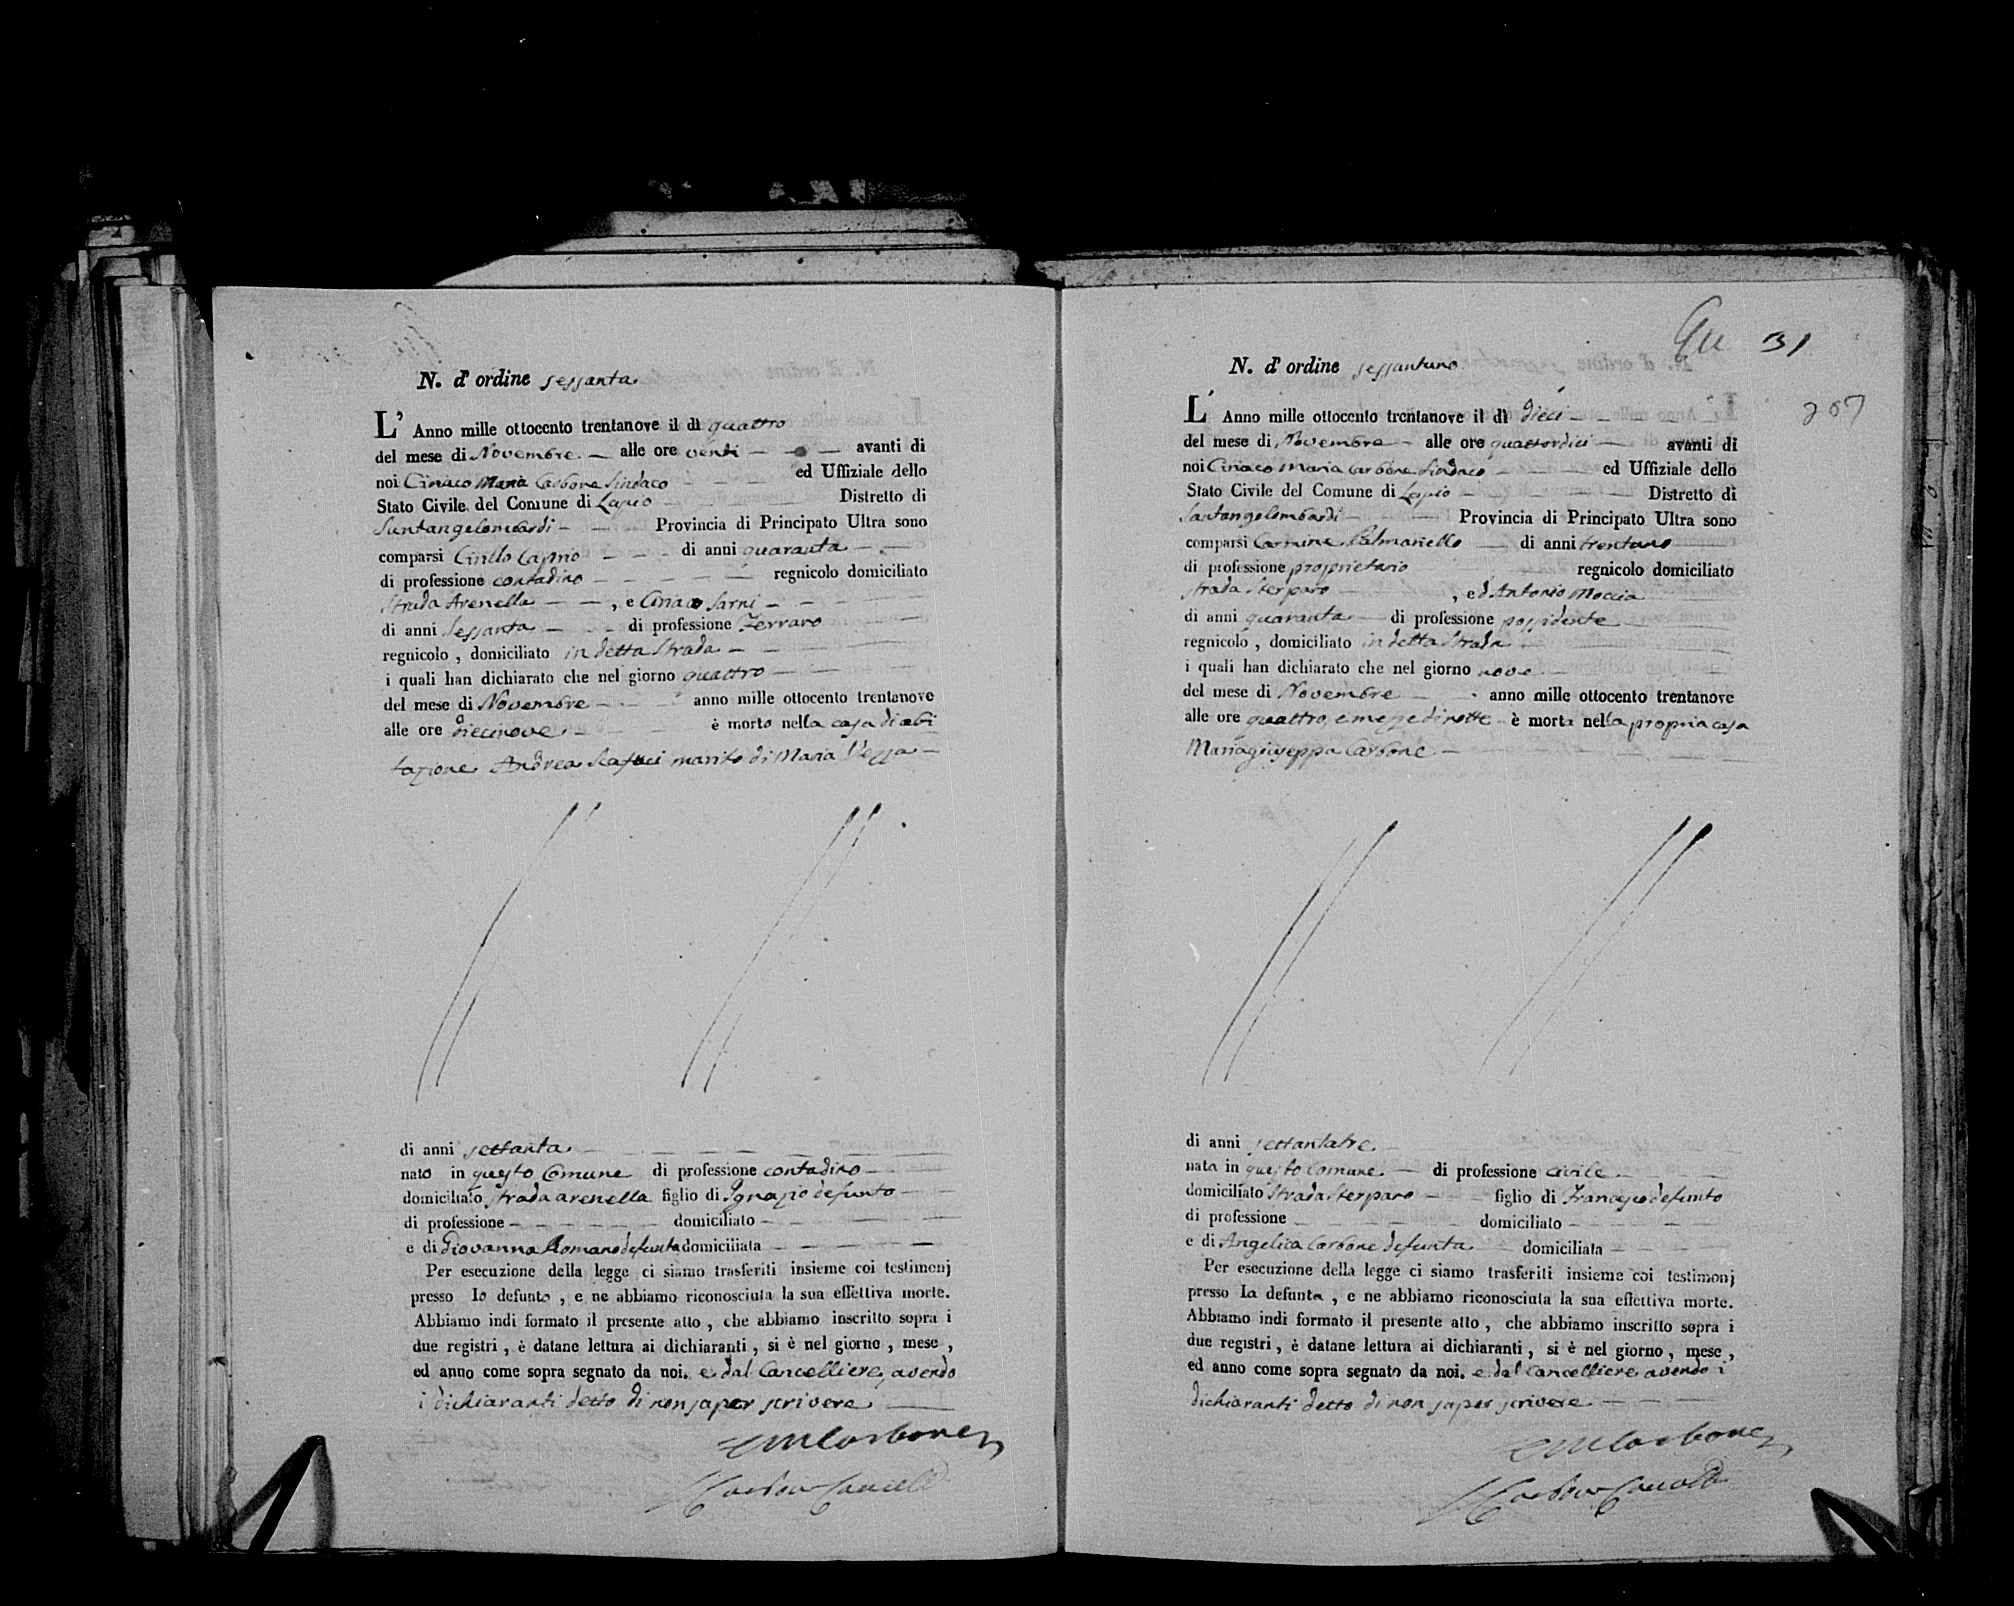 N. d' ordine sessanta
L' Anno mille ottocento trentanove il dì quattro
del mese di Novembre alle ore venti avanti di
noi Ciriaco Maria Carbone Sindaco ed Uffiziale dello
Stato Civile del Comune di Lapio Distretto di
Santangelombardi Provincia di Principato Ultra sono
comparsi Cirillo Caprio di anni quaranta
di professione contadino regnicolo domiciliato
Strada Arenella , e Ciriaco Sarni
di anni sessanta di professione Ferraro
regnicolo , domiciliato in detta Strada
i quali han dichiarato che nel giorno quattro
del mese di Novembre anno mille ottocento trentanove
alle ore diecinove è morto nella casa di abi
tazione Andrea marito di Maria
di anni settanta
nato in questo Comune di professione contadino
domiciliato strada arenella figlio di Ignazio defunto
di professione domiciliato
e di Giovanna Romano defunta domiciliata
Per esecuzione della legge ci siamo trasferiti insieme coi testimonj
presso lo defunto , e ne abbiamo riconosciuta la sua effettiva morte.
Abbiamo indi formato il presente atto , che abbiamo inscritto sopra i
due registri , è datane lettura ai dichiaranti , si è nel giorno , mese ,
ed anno come sopra segnato da noi. e dal Cancelliere, avendo
i dichiaranti detto di non saper scrivere
CMCarbone
Carbone Cancell
31
207
N. d' ordine sessantuno
L' Anno mille ottocento trentanove il dì dieci
del mese di Novembre alle ore quattordici avanti di
noi Ciriaco Maria Carbone Sindaco ed Uffiziale dello
Stato Civile del Comune di Lapio Distretto di
Santangelombardi Provincia di Principato Ultra sono
comparsi Carmine Palmariello di anni trentuno
di professione proprietario regnicolo domiciliato
strada Sterparo , ed Antonio Moccia
di anni quaranta di professione possidente
regnicolo , domiciliato in detta Strada
i quali han dichiarato che nel giorno nove
del mese di Novembre anno mille ottocento trentanove
alle ore quattro, e mezze di notte è morta nella propria casa
Mariagiuseppa Carbone
di anni settantatre
nata in questo Comune di professione civile
domiciliato Strada Sterparo figlio di Francesco defunto
di professione domiciliato
e di Angelica Carbone defunta domiciliata
Per esecuzione della legge ci siamo trasferiti insieme coi testimonj
presso la defunta , e ne abbiamo riconosciuta la sua effettiva morte.
Abbiamo indi formato il presente atto , che abbiamo inscritto sopra i
due registri , è datane lettura ai dichiaranti , si è nel giorno , mese ,
ed anno come sopra segnato da noi. e dal Cancelliere avendo i
dichiaranti detto di non saper scrivere
CMCarbone
Carbone Cancell